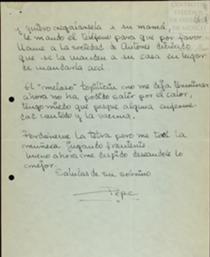 y quiero regalarsela a su mamá,
le mando el teléfono para que por favor
llame a la sociedad de Autores diciendo
que se la manden a su casa en lugar
de mandarla acá.
El "melaso" Topilitzin no me deja terminar
ahora no ha podido salir por el calor,
tengo miedo que pesque alguna enfermedad
cantado y la vacuna.
Perdóneme la letra pero me torcí la
muñeca jugando frontenis
bueno ahora me despido deseandole lo
mejor.
Saludos de su sobrino
Pepe